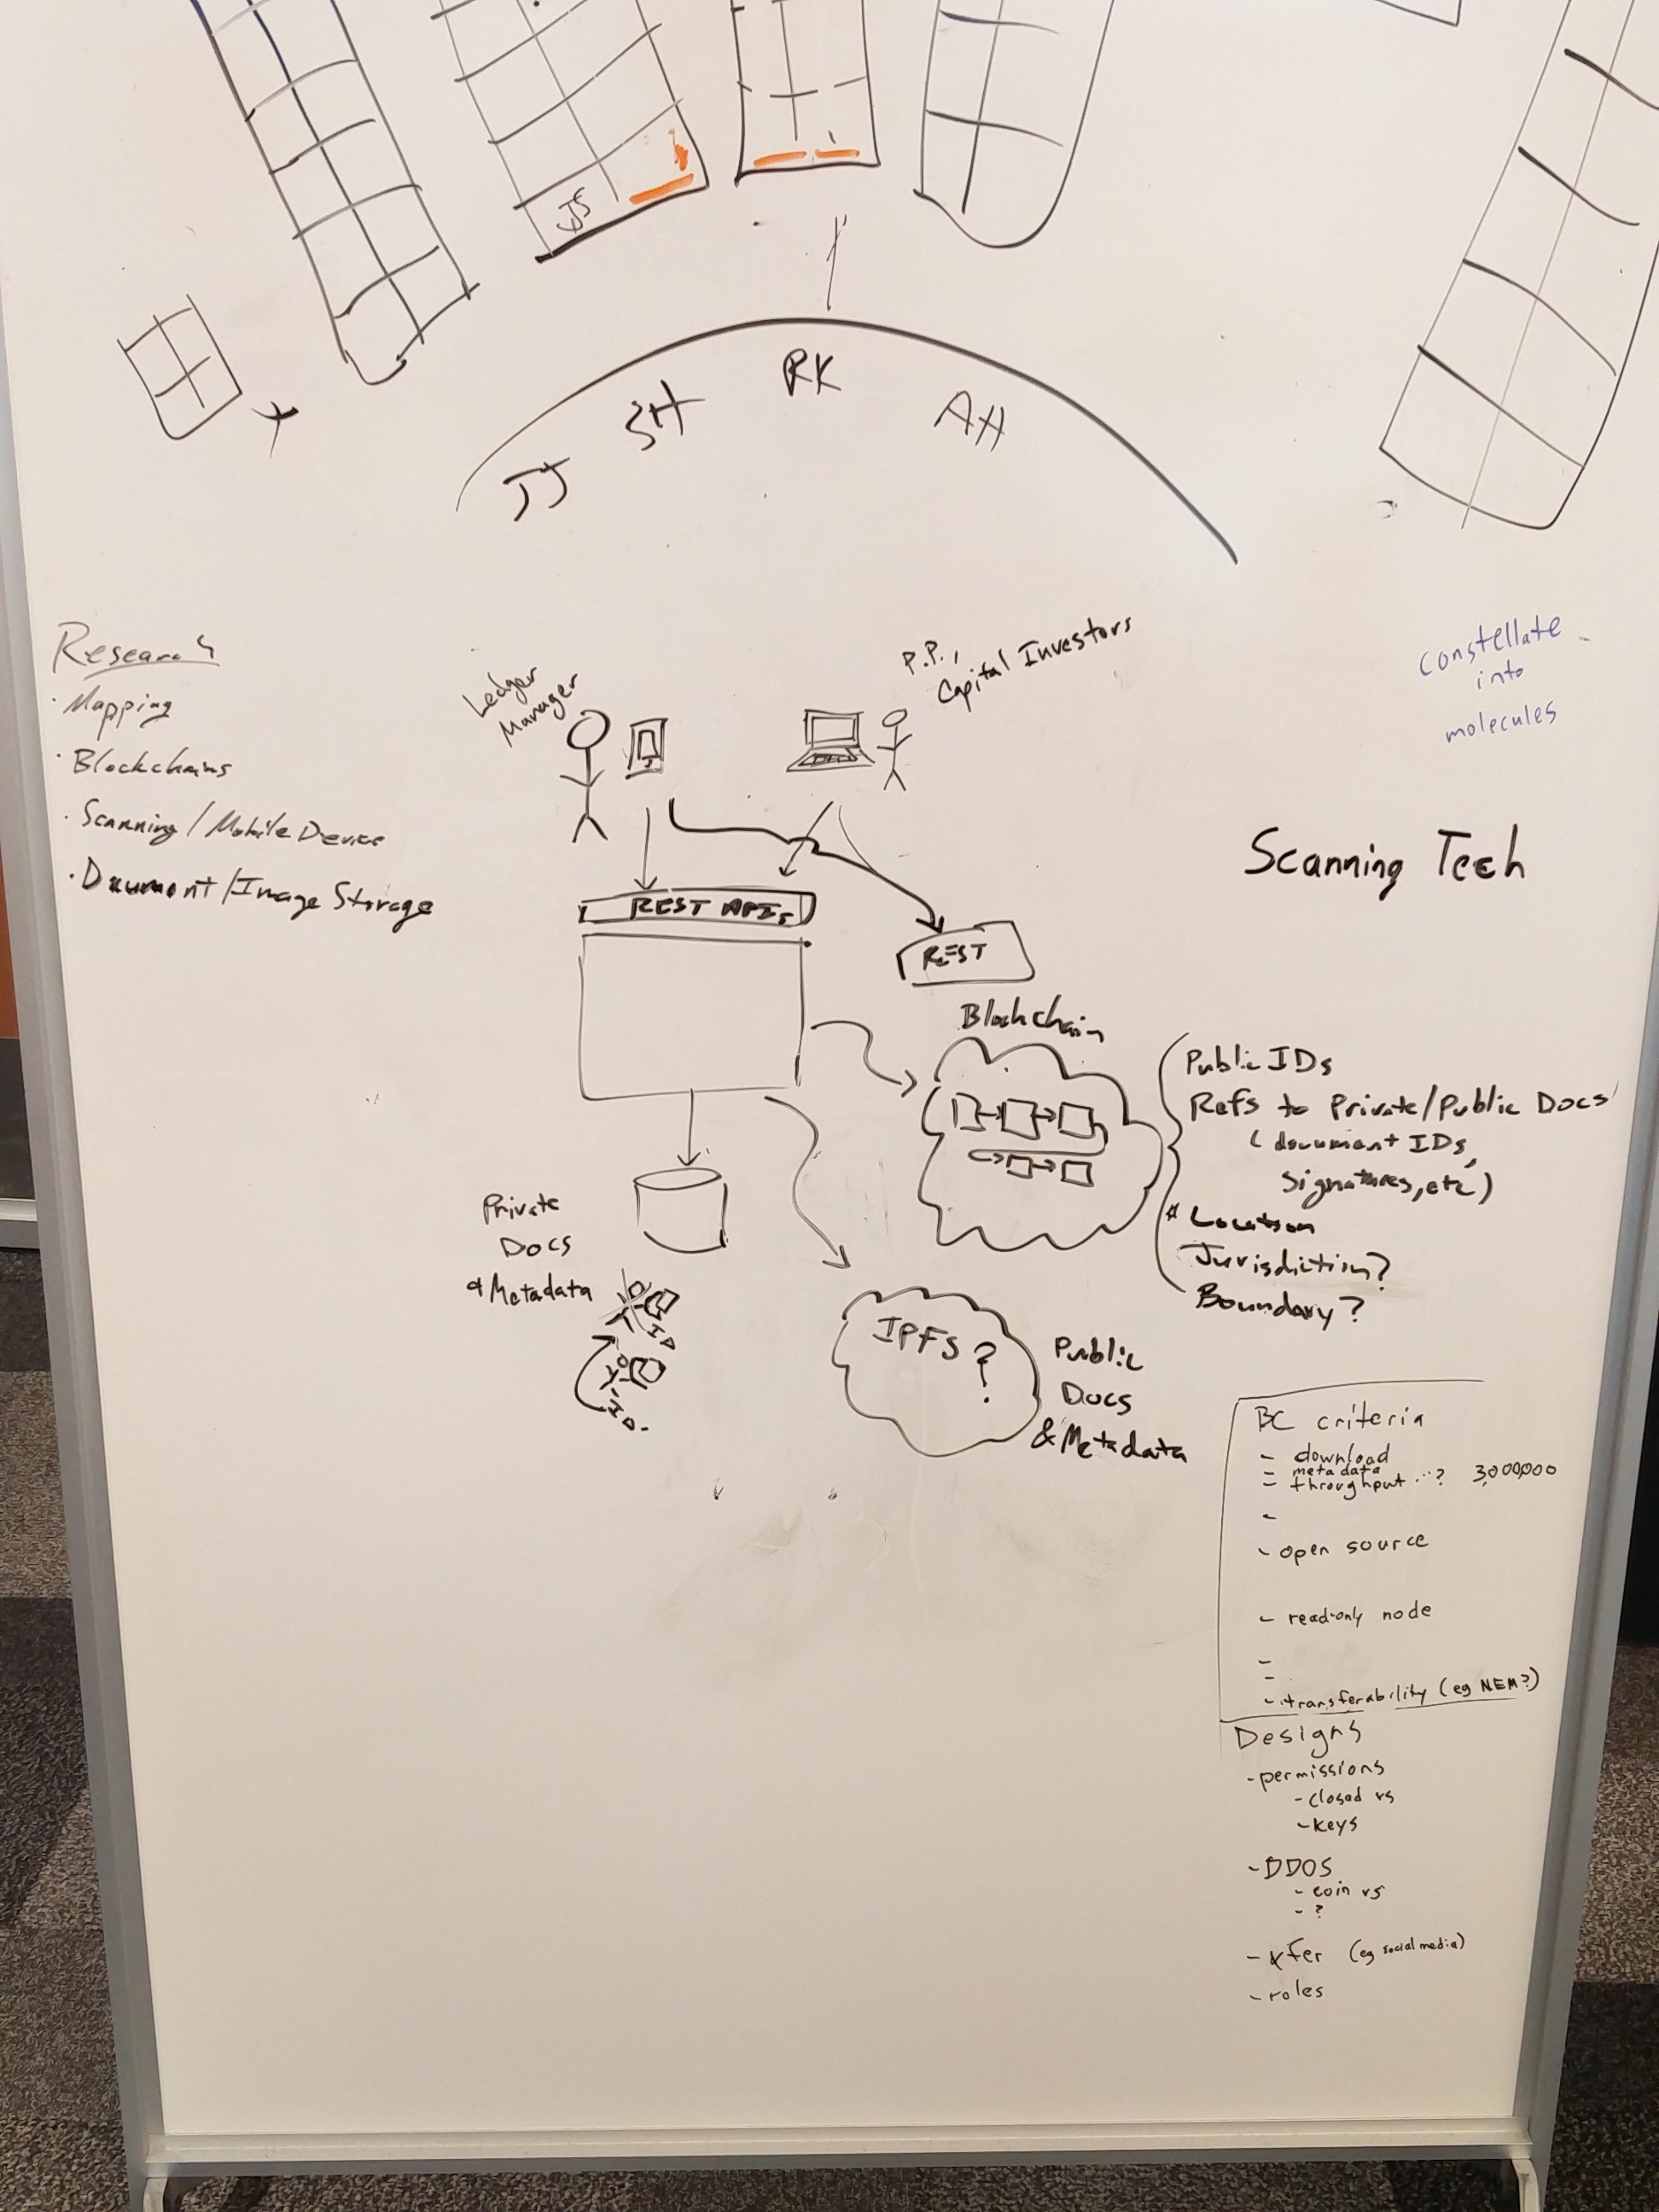 JS
JJ
SH
RK
AH
Research
· Mapping
· Blockchains
· Scanning / Mobile Device
· Document / Image Storage
Ledger
Manager
P.P.,
Capital Investors
Constellate
into
molecules
Scanning Tech
REST APIs
REST
Blockchain
Public IDs
Refs to Private/Public Docs
(document IDs,
signatures, etc)
* Location
Jurisdiction?
Boundary?
Private
Docs
& Metadata
ID
ID.
IPFS ?
Public
Docs
& Metadata
BC criteria
- download
- metadata
- throughput ...? 3,000,000
-
- open source
- read-only node
-
-
- transferability (eg NEM?)
Designs
- permissions
- closed vs
- keys
- DDOS
- coin vs
- ?
- xfer (eg social media)
- roles